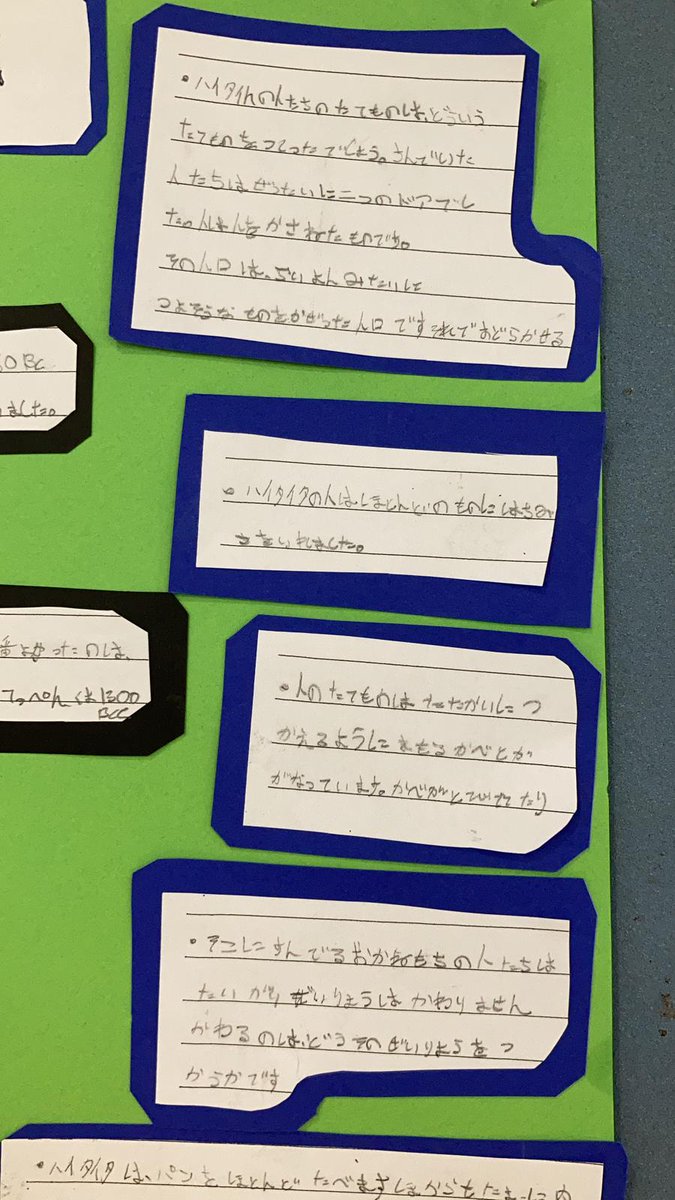 ・ハイタイトの人たちのたてものは、どういう
たてものをつくったでしょう。すんでいた
人たちはぜったいに二つのドアでし
かさねたものです。
その入口は、らいよんみたいに
つよそうなものをかざった入口です それでおどらかせる
0 BC
ました。
・ハイタイタの人はほとんどのものにはちみ
つをいれました。
番よかったのは、
てっぺんくは1300
BCC
・人のたてものはたたかいにつ
かえるようにまもるかべとか
がなっています。かべが たり
・そこにすんでるおかねもちの人たちは
たいがい ざいりょうはかわりません
かわるのは、どうそのざいりょうをつ
かうかです
・ハイタイタは、パンをほとんどたべます ほかにも